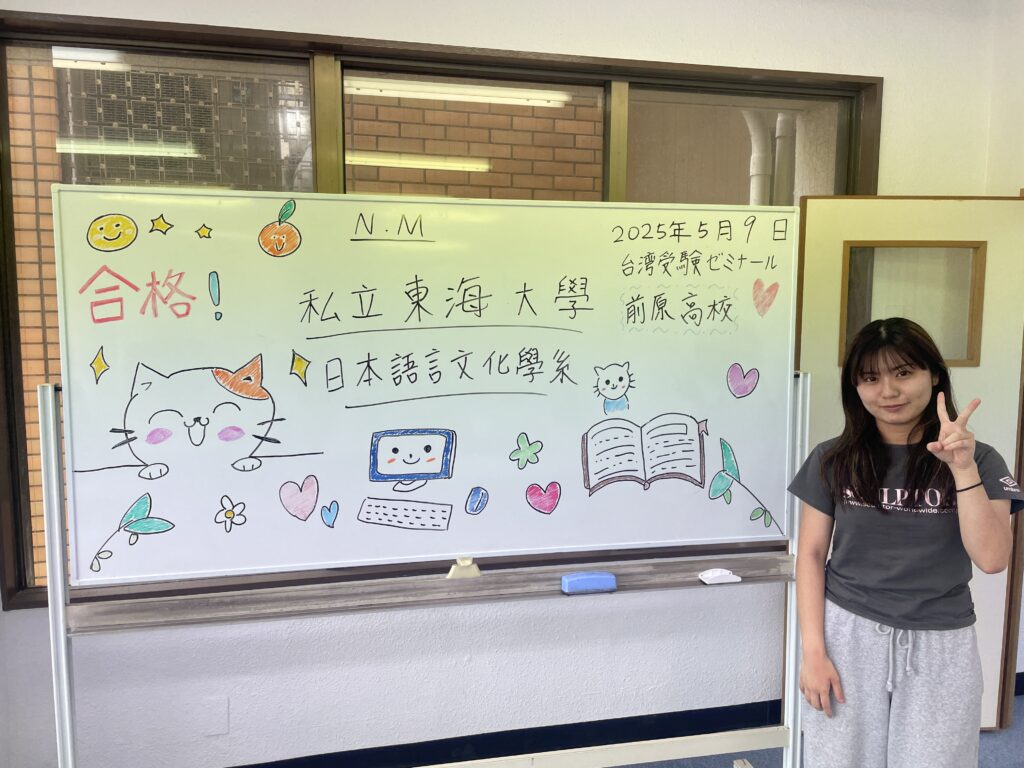 N.M
2025年5月9日
台湾受験ゼミナール
前原高校
合格!
私立東海大學
日本語言文化學系
umbro